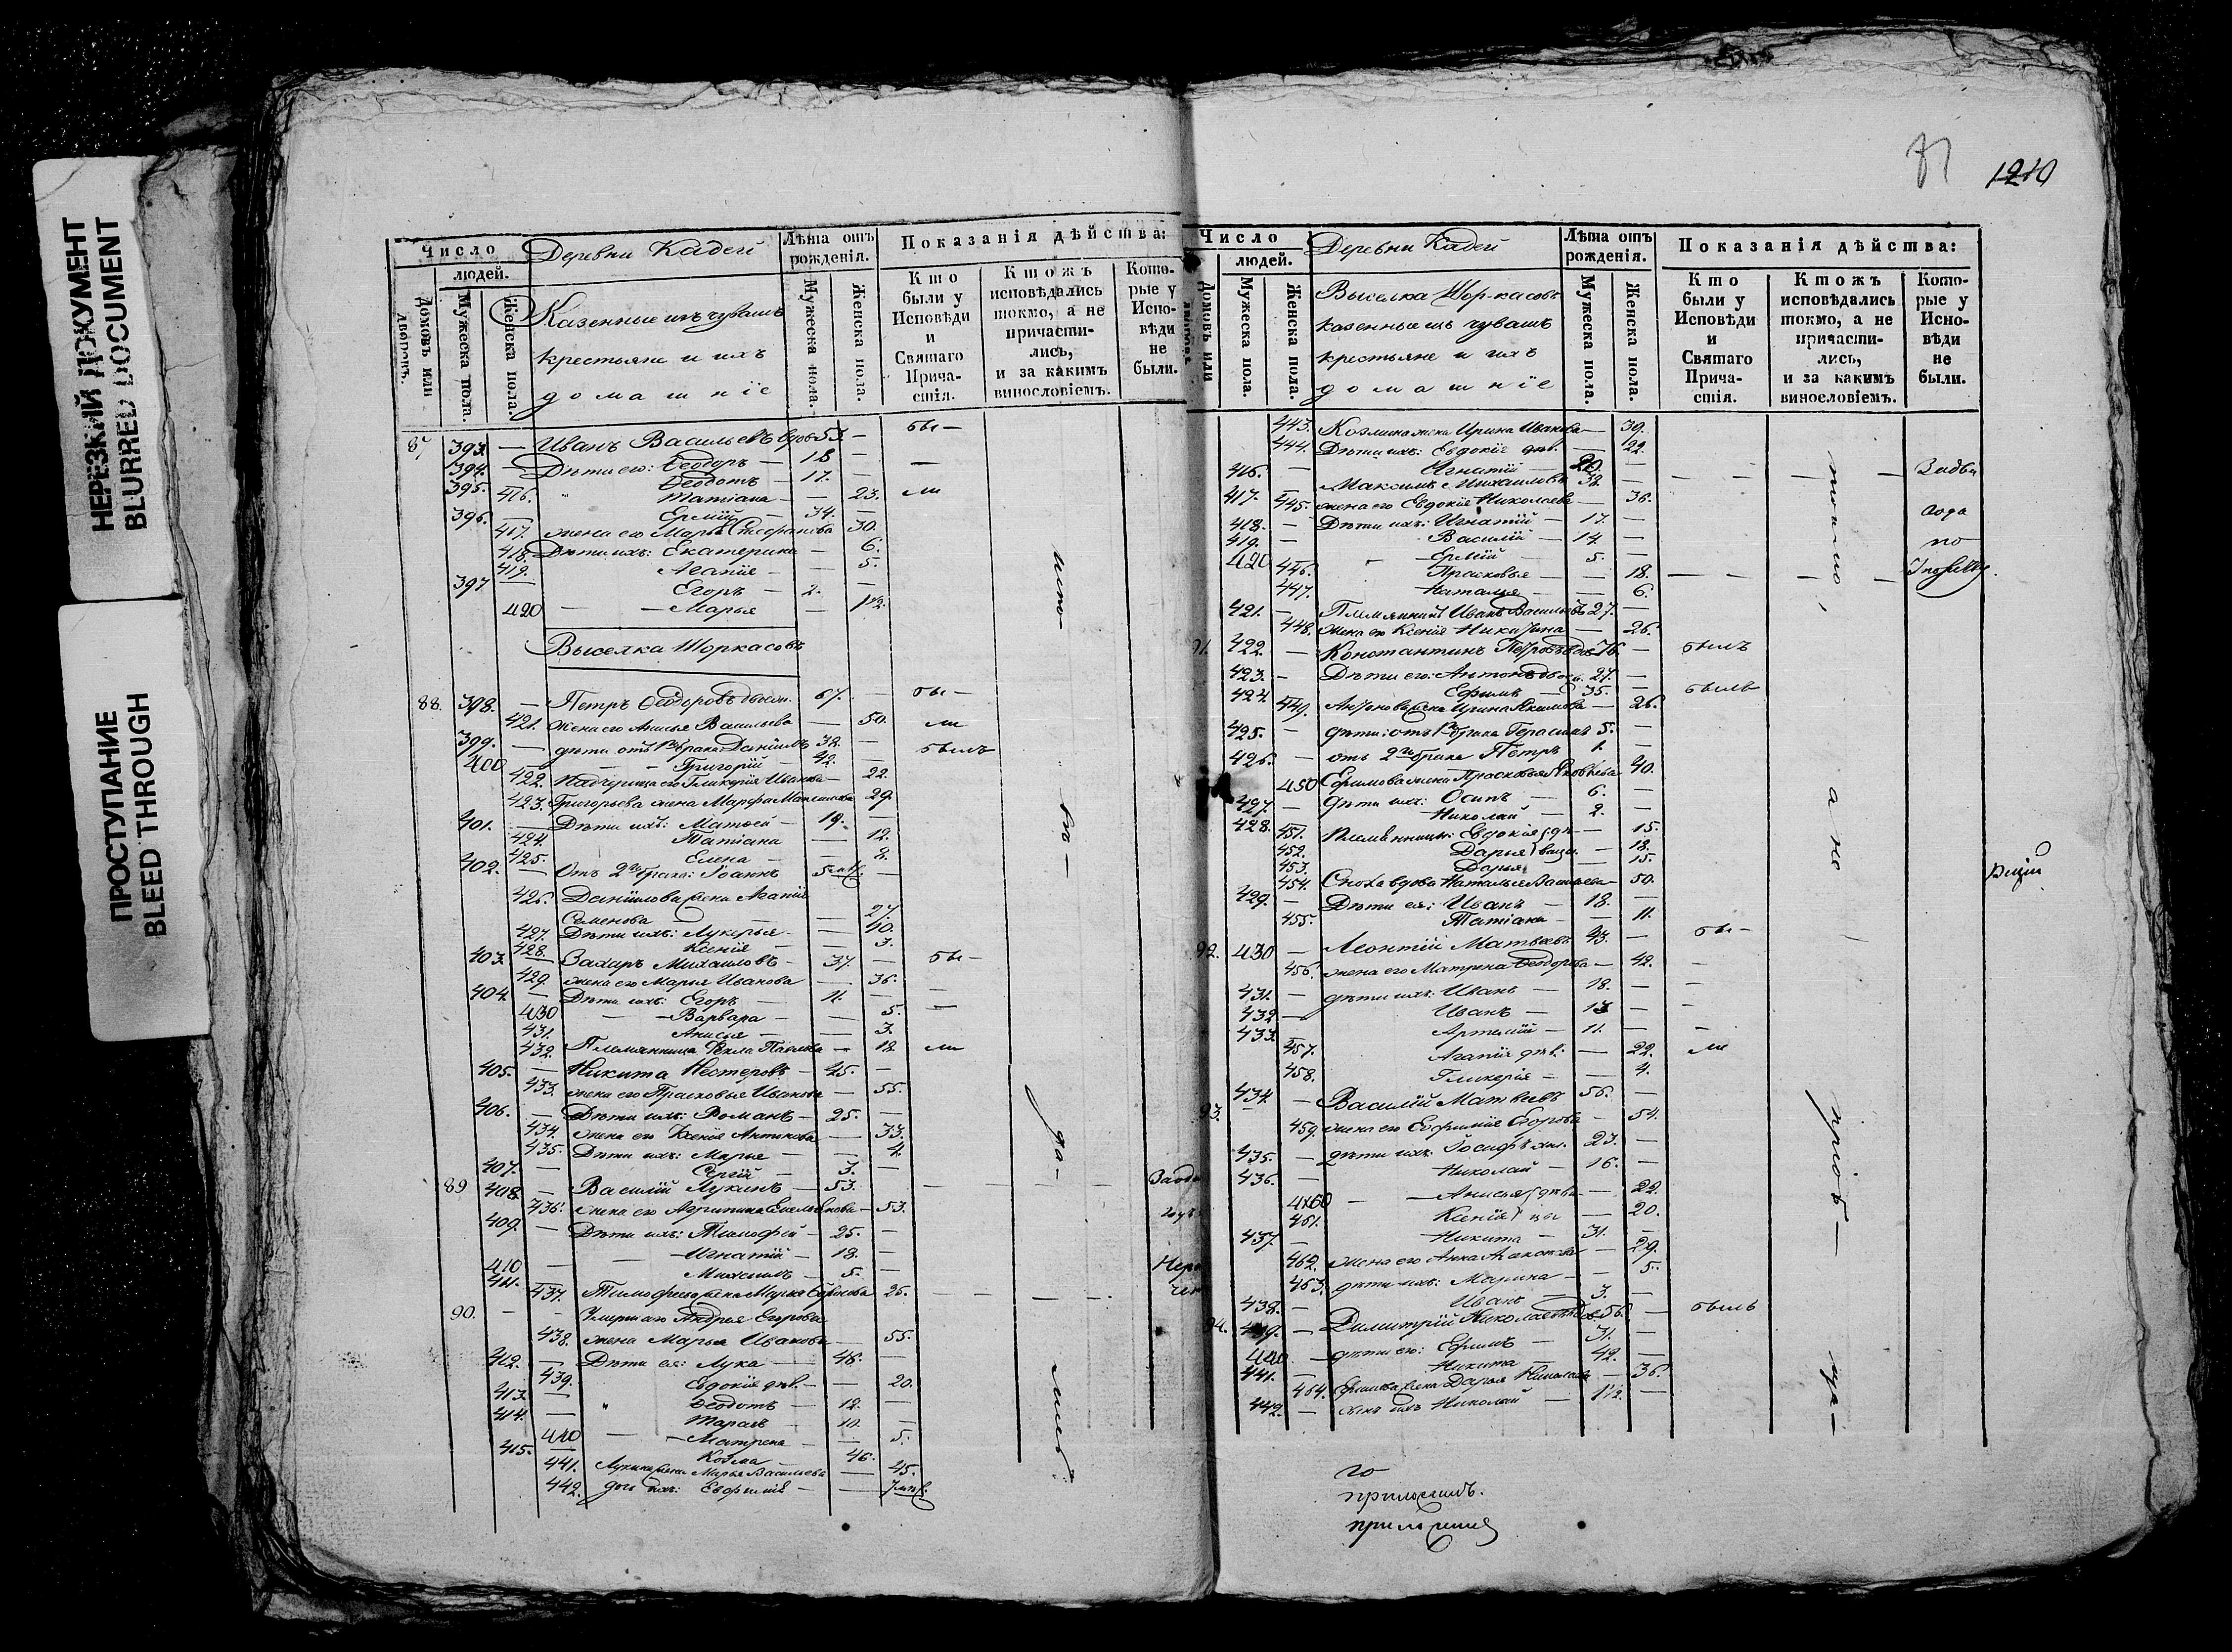 НЕРЕЗКИЙ ДОКУМЕНТ
BLURRED DOCUMENT
ПРОСТУПАНИЕ
BLEED THROUGH
Число
людей.
Домовъ или дворовъ.
Мужеска пола.
Женска пола.
Деревни Кадей
Казенные изъ чувашъ
крестьяне и ихъ
домашніе
Лѣта отъ рожденія.
Мужеска пола.
Женска пола.
Показанія дѣйства:
Кто были у Исповѣди и Святаго Прича-стія.
Ктожъ исповѣдались токмо, а не причасти-лись, и за какимъ винословіемъ.
Кото-рые у Испо-вѣди не были.
87 393. — Иванъ Васильевъ вдов 53. — бы —
394. — Дѣти его: Ѳеодоръ — 18 — —
395. — Ѳеодотъ — 17. —
416. " Татіана — — 23. ли
396. — Ермій — 34. —
417. жена его Марья 30.
418. Дѣти ихъ: Екатерина — 6.
419. Агапія — — 5.
397 — Егоръ — 2. —
420 — — Марья — 1/2.
Выселка Шоркасовъ
88. 398. — Петръ Ѳеодоровъ 67. — бы —
421. Жена его Анисья Васильева — 50. ли
399. — дѣти отъ 1го брака: Даніилъ 32. — былъ
400 — — Григорій — 42. —
422. Падчерица его Гликерія Иванова — 22.
423. Григорьева жена Марфа Максимова 29.
401. — Дѣти ихъ: Матвей — 19. —
424. Татіана — 12.
425. Елена — — 8.
402. — Отъ 2го брака: Іоаннъ —
426. Даніилова жена Агапія
Семенова — — — 27.
427. Дѣти ихъ: Лукерья — — 10.
428. Ксенія — — 3.
403. — Захаръ Михаиловъ — 37. — бы —
429. жена его Марья Иванова — 36. —
404. — Дѣти ихъ: Егоръ — 11. — —
430 — — Варвара — — 5.
431. Анисья — — 3.
432. Племянница Ѳекла Павлова — 12. ли
405. — Никита Нестеровъ — 45. —
433. жена его Прасковья Иванова — 55.
406. — Дѣти ихъ: Романъ — 25. —
434. жена его Ксенія Антонова — 33.
435. Дѣти ихъ: Марья — — 4.
407. — Сергій — 3. —
89 408. — Василій Лукинъ — 53.
436. жена его Агрипина Емельянова — 53.
409. — Дѣти ихъ: Тимофей — 25. —
— Игнатій — 18. —
410 — — Максимъ — 5. —
411. 437. Тимофеева жена Марья 25.
90. — — Умершаго Андрея Егорова
438. жена Марья Иванова — 55.
412. — Дѣти ея: Лука — 48. —
439. Евдокія дѣв. — — 20.
413. — " Ѳеодотъ — 12. —
414. — Тарасъ — 10. —
440 — — Матрена — — 5.
415. — Козма — 46.
441. Лукина жена Марья Васильева — 45.
442. дочь ихъ: Евфимія —
испо-
вѣ-
да-
лись
81
1210
Число
людей.
Домовъ или дворовъ
Мужеска пола.
Женска пола.
Деревни Кадей
Выселка Шор-касовъ
казенные изъ чувашъ
крестьяне и ихъ
домашніе
Лѣта отъ рожденія.
Мужеска пола.
Женска пола.
Показанія дѣйства:
Кто были у Исповѣди и Святаго Прича-стія.
Ктожъ исповѣдались токмо, а не причасти-лись, и за какимъ винословіемъ.
Кото-рые у Испо-вѣди не были.
443. Козмина жена Ирина Иванова — 39.
444. Дѣти ихъ: Евдокія дѣв. — 22.
416. — Игнатій — 20. —
417. — Максимъ Михаиловъ 32. —
445. жена его Евдокія Николаева — 36.
418. — Дѣти ихъ: Игнатій — 17. —
419. — Василій — 14. — по
420 " Ермій — 5. —
446. Прасковья — — 18.
447. — Наталья — — 6.
421. — Племянникъ Иванъ Васильевъ 27. —
448. Жена его Ксенія Никитина — 26.
91. 422. — Константинъ Петровъ 76. — былъ
423. — Дѣти его: Антонъ 27. —
424. Ефимъ — 35. — былъ
449. Антонова жена Ирина — 26.
425. — дѣти: отъ 1го брака Герасимъ 5. —
426. — отъ 2го брака Петръ 1. —
450 Ефимова жена Прасковья Яковлева 40.
427. — Дѣти ихъ: Осипъ — 6. —
428. — Николай — 2. —
451. Племянницы: Евдокія — 15.
452. Дарья — 18.
453. Дарья — 15.
454. Сноха вдова Наталья Васильева — 50.
429. — Дѣти ея: Иванъ — 18. —
455. Татіана — — 11.
92. 430 — Леонтій Матвеевъ 43. — бы —
456. жена его Матрена Ѳеодорова — 42. —
431. — дѣти ихъ: Иванъ — 18. — —
432 — Иванъ — 13 — —
433. Артемій — 11. — —
457. Агапія дѣв. — 22. ли
458. Гликерія — — 4.
93. 434. — Василій Матвеевъ 56. —
459. жена его Евфимія Егорова — 54.
435. — дѣти ихъ: Іосифъ 23. —
436. — Николай — 16. —
460 — — Анисья — 22.
461. Ксенія — 20.
437. — Никита — 31. —
462. жена его Анна — 29.
463. дѣти ихъ: Марина — — 5.
438. — Иванъ — 3. —
94. 439. — Димитрій Николаевъ 56. — былъ
440 — дѣти его: Ефимъ — 31. —
441. — Никита — 42. —
464. Ефимова жена Дарья Николаева — 36.
442. — сынъ ихъ Николай — 1/2. —
токмо,
а не
пріоб-
ща-
го